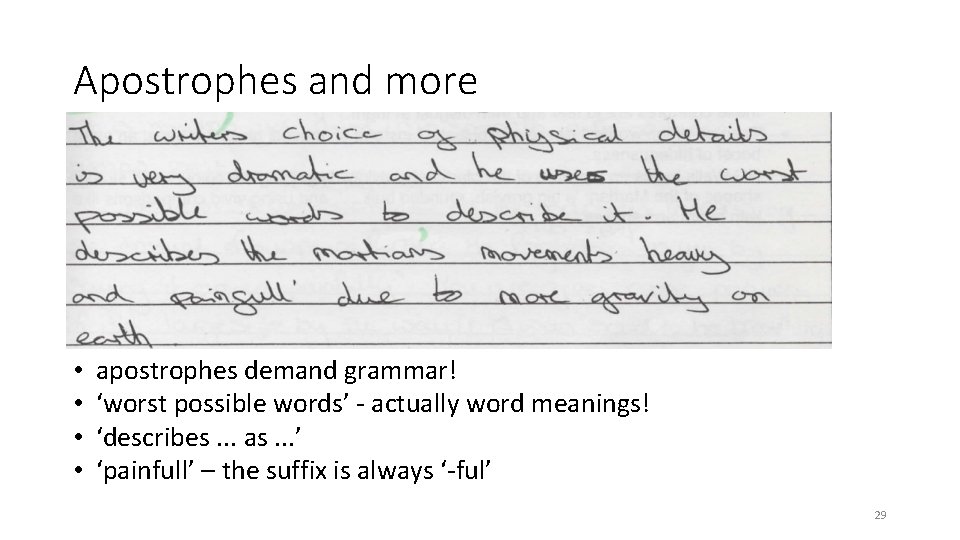 Apostrophes and more
The writers choice of physical details
is very dramatic and he uses the worst
possible words to describe it. He
describes the martian's movements 'heavy
and painfull' due to more gravity on
earth.
• apostrophes demand grammar!
• ‘worst possible words’ - actually word meanings!
• ‘describes ... as ...’
• ‘painfull’ – the suffix is always ‘-ful’
29